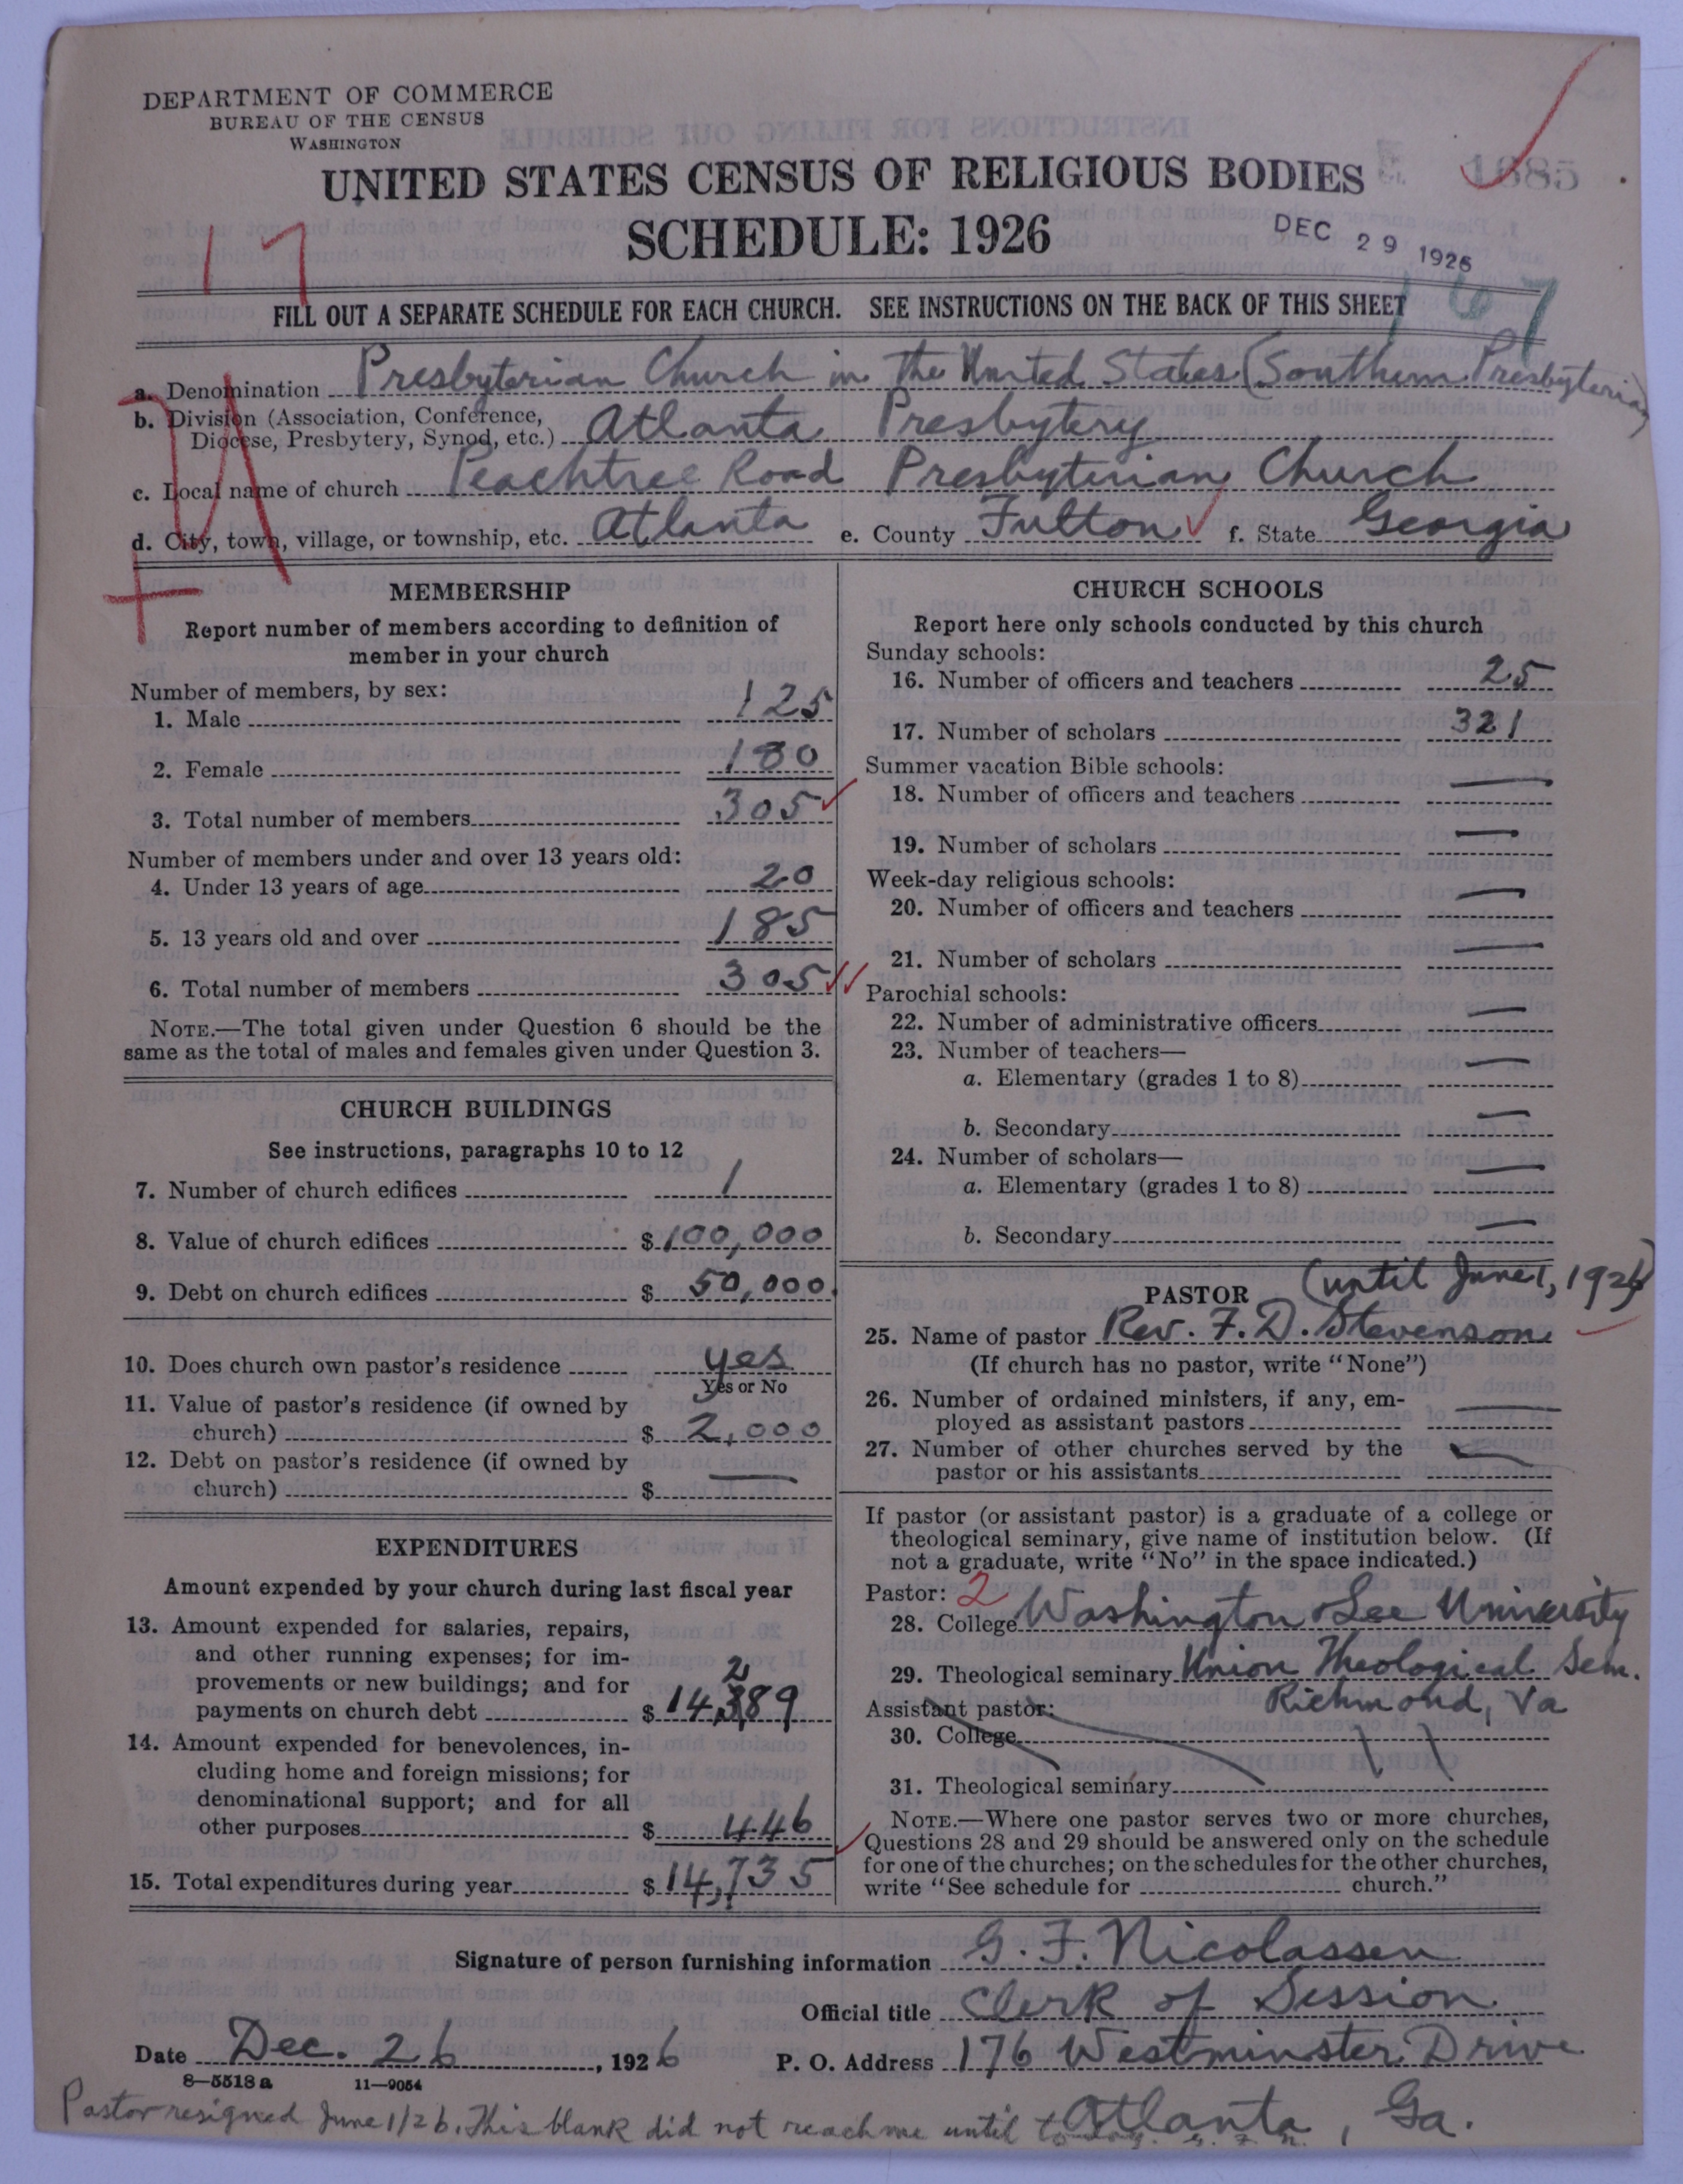 DEPARTMENT OF COMMERCE
BUREAU OF THE CENSUS
WASHINGTON
UNITED STATES CENSUS OF RELIGIOUS BODIES
SCHEDULE: 1926
DEC 29 1926
1885
17
167
FILL OUT A SEPARATE SCHEDULE FOR EACH CHURCH. SEE INSTRUCTIONS ON THE BACK OF THIS SHEET
a. Denomination Presbyterian Church in the United States (Southern Presbyterian)
b. Division (Association, Conference,
Diocese, Presbytery, Synod, etc.) Atlanta Presbytery
c. Local name of church Peachtree Road Presbyterian Church
d. City, town, village, or township, etc. Atlanta e. County Fulton f. State Georgia
MEMBERSHIP
Report number of members according to definition of
member in your church
Number of members, by sex:
1. Male 125
2. Female 180
3. Total number of members 305
Number of members under and over 13 years old:
4. Under 13 years of age 20
5. 13 years old and over 185
6. Total number of members 305
NOTE.—The total given under Question 6 should be the
same as the total of males and females given under Question 3.
CHURCH BUILDINGS
See instructions, paragraphs 10 to 12
7. Number of church edifices 1
8. Value of church edifices $ 100,000
9. Debt on church edifices $ 50,000
10. Does church own pastor's residence yes
Yes or No
11. Value of pastor's residence (if owned by
church) $ 2,000
12. Debt on pastor's residence (if owned by
church) $ —
EXPENDITURES
Amount expended by your church during last fiscal year
13. Amount expended for salaries, repairs,
and other running expenses; for im-
provements or new buildings; and for
2
payments on church debt $ 14,389
14. Amount expended for benevolences, in-
cluding home and foreign missions; for
denominational support; and for all
other purposes $ 446
15. Total expenditures during year $ 14,735
CHURCH SCHOOLS
Report here only schools conducted by this church
Sunday schools:
16. Number of officers and teachers 25
17. Number of scholars 321
Summer vacation Bible schools:
18. Number of officers and teachers —
19. Number of scholars —
Week-day religious schools:
20. Number of officers and teachers —
21. Number of scholars —
Parochial schools:
22. Number of administrative officers —
23. Number of teachers—
a. Elementary (grades 1 to 8) —
b. Secondary —
24. Number of scholars—
a. Elementary (grades 1 to 8) —
b. Secondary —
PASTOR (until June 1, 1926)
25. Name of pastor Rev. F. D. Stevenson
(If church has no pastor, write "None")
26. Number of ordained ministers, if any, em-
ployed as assistant pastors —
27. Number of other churches served by the
pastor or his assistants —
If pastor (or assistant pastor) is a graduate of a college or
theological seminary, give name of institution below. (If
not a graduate, write "No" in the space indicated.)
Pastor: 2
28. College Washington & Lee University
29. Theological seminary Union Theological Sem.
Assistant pastor: Richmond, Va
30. College
31. Theological seminary
NOTE.—Where one pastor serves two or more churches,
Questions 28 and 29 should be answered only on the schedule
for one of the churches; on the schedules for the other churches,
write "See schedule for church."
Signature of person furnishing information G. F. Nicolassen
Official title Clerk of Session
Date Dec. 26, 1926 P. O. Address 176 Westminster Drive
8—5518 a 11—9054
Atlanta, Ga.
Pastor resigned June 1/26. This blank did not reach me until